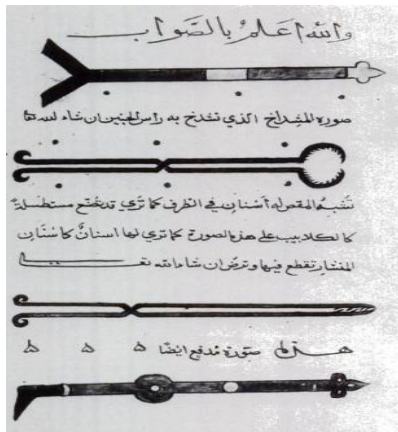 والله اعلم بالصواب
صورة المشداخ الذي تشدخ به راس الجنين ان شاء لله
تشبه المقص له أسنان في الطرف كما تري قد تصنع مستطيلة
كالكلاليب على هذه الصورة كما تري لها اسنان كاسنان
المنشار تقطع فيها وترض ان شاء الله
صورة مدفع ايضًا ه ه ه